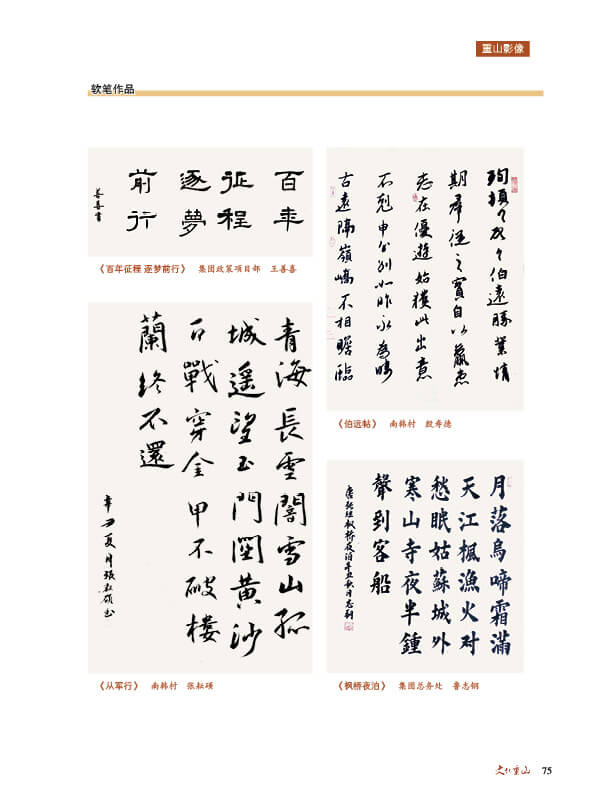 重山影像
软笔作品
百年
征程
逐夢
前行
善喜書
《百年征程 逐梦前行》 集团政策项目部 王善喜
珣頓々首々伯遠勝業情
期群從之寶自以羸患
志在優遊始獲此出意
不剋申分別如昨永為疇
古遠隔嶺嶠不相瞻臨
《伯远帖》 南韩村 殷寿德
青海長雲闇雪山孤
城遥望玉門關黄沙
百戰穿金甲不破樓
蘭終不還
辛丑夏月張松碩书
《从军行》 南韩村 张松硕
月落烏啼霜滿
天江楓漁火对
愁眠姑蘇城外
寒山寺夜半鍾
聲到客船
唐張继楓桥夜泊辛丑秋月志钢
《枫桥夜泊》 集团总务处 鲁志钢
文化重山 75